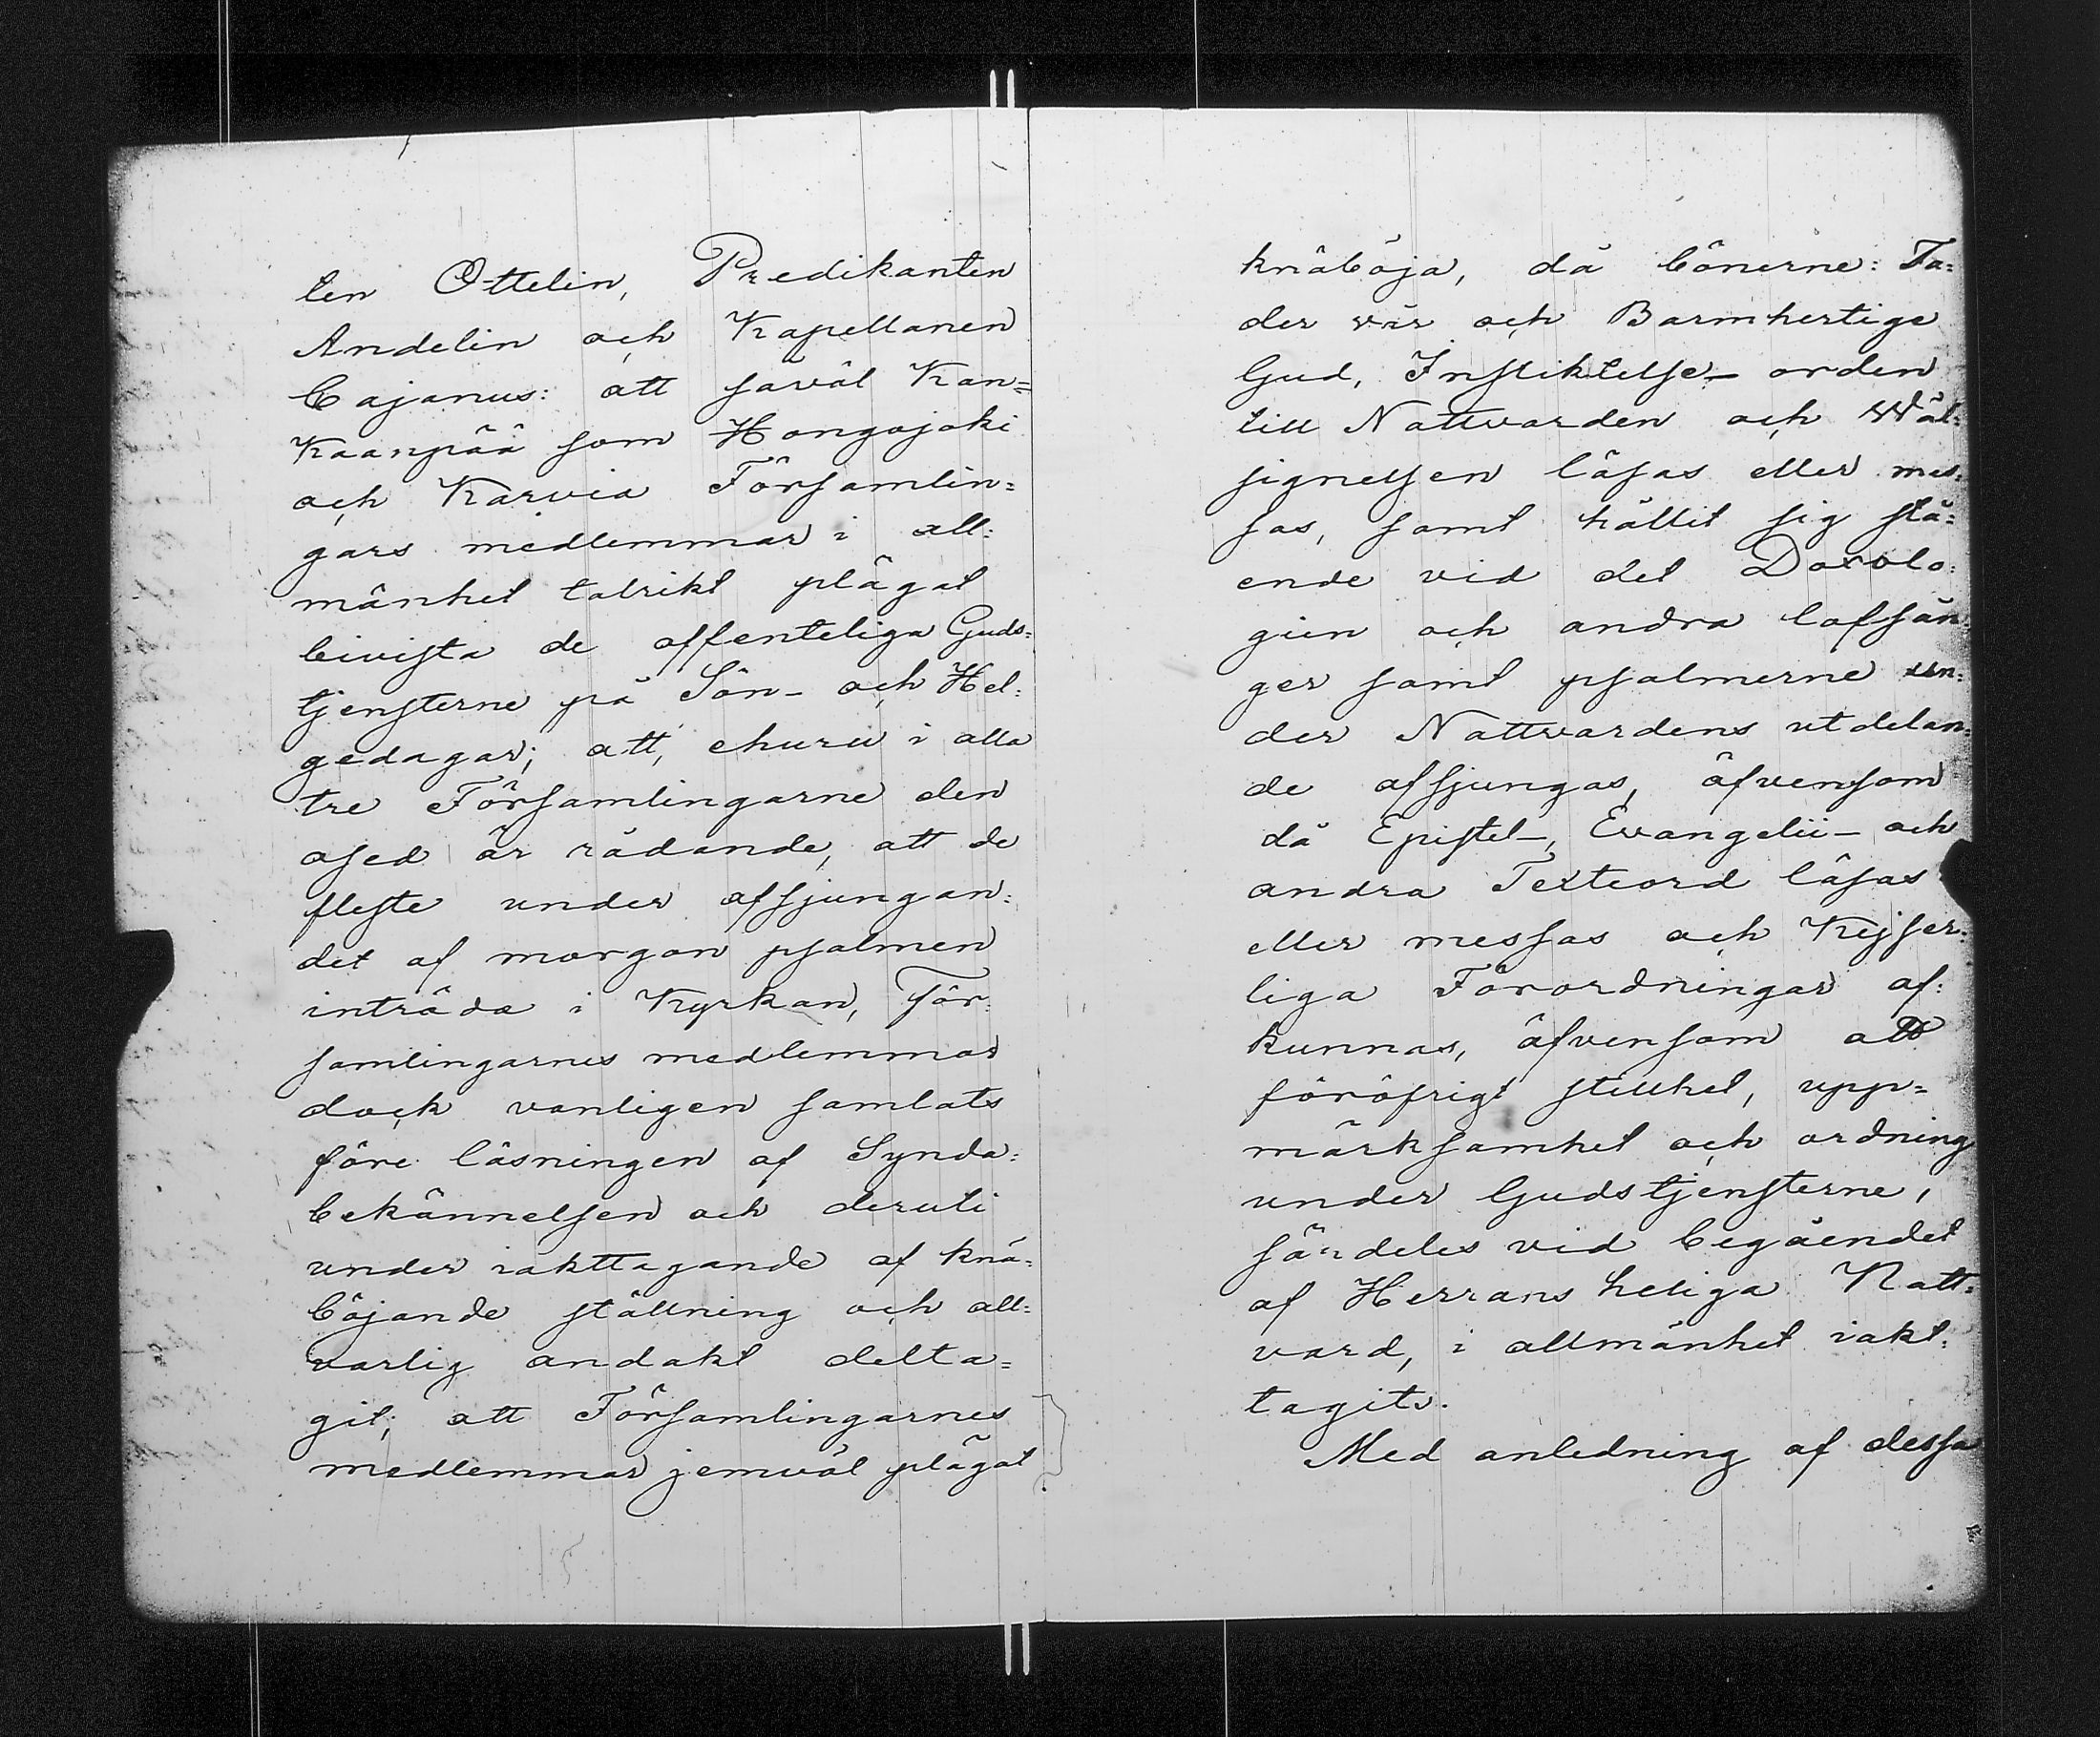 ten Ottelin, Predikanten
Andelin och Kapellanen
Cajanus: att såväl Kan=
Kaanpää som Hongojoki
och Karvia Församlin=
gars medlemmar i all=
mänhet talrikt plägat
bivista de offenteliga Guds=
tjensterne på Sön- och Hel=
gedagar; att, ehuru i alla
tre Församlingarne den
osed är rådande, att de
fleste under afsjungan=
det af morgon psalmen
inträda i Kyrkan, För=
samlingarnes medlemmar
dock vanligen samlats
före läsningen af Synda=
bekännelsen och deruti
under iakttagande af knä=
böjande ställning och all=
varlig andakt delta=
git; att Församlingarnes
medlemmar jemväl plägat
15
knäböja, då bönerne: Fa=
der vår och Barmhertige
Gud, Instiktelse- orden
till Nattvarden och Wäl=
signelsen läsas eller mes=
sas, samt hållit sig stå=
ende vid det Doxolo=
gien och andra lofsån=
ger samt psalmerne un=
der Nattvardens utdelan=
de afsjungas, äfvensom
då Epistel-, Evangelii- och
andra Texteord läsas
eller messas och Kejser=
liga Förordningar af=
kunnas, äfvensom att
föröfrigt stillhet, upp=
märksamhet och ordning
under Gudstjensterne,
särdeles vid begåendet
af Herrans heliga Natt=
vard, i allmänhet iakt=
tagits.
Med anledning af dessa